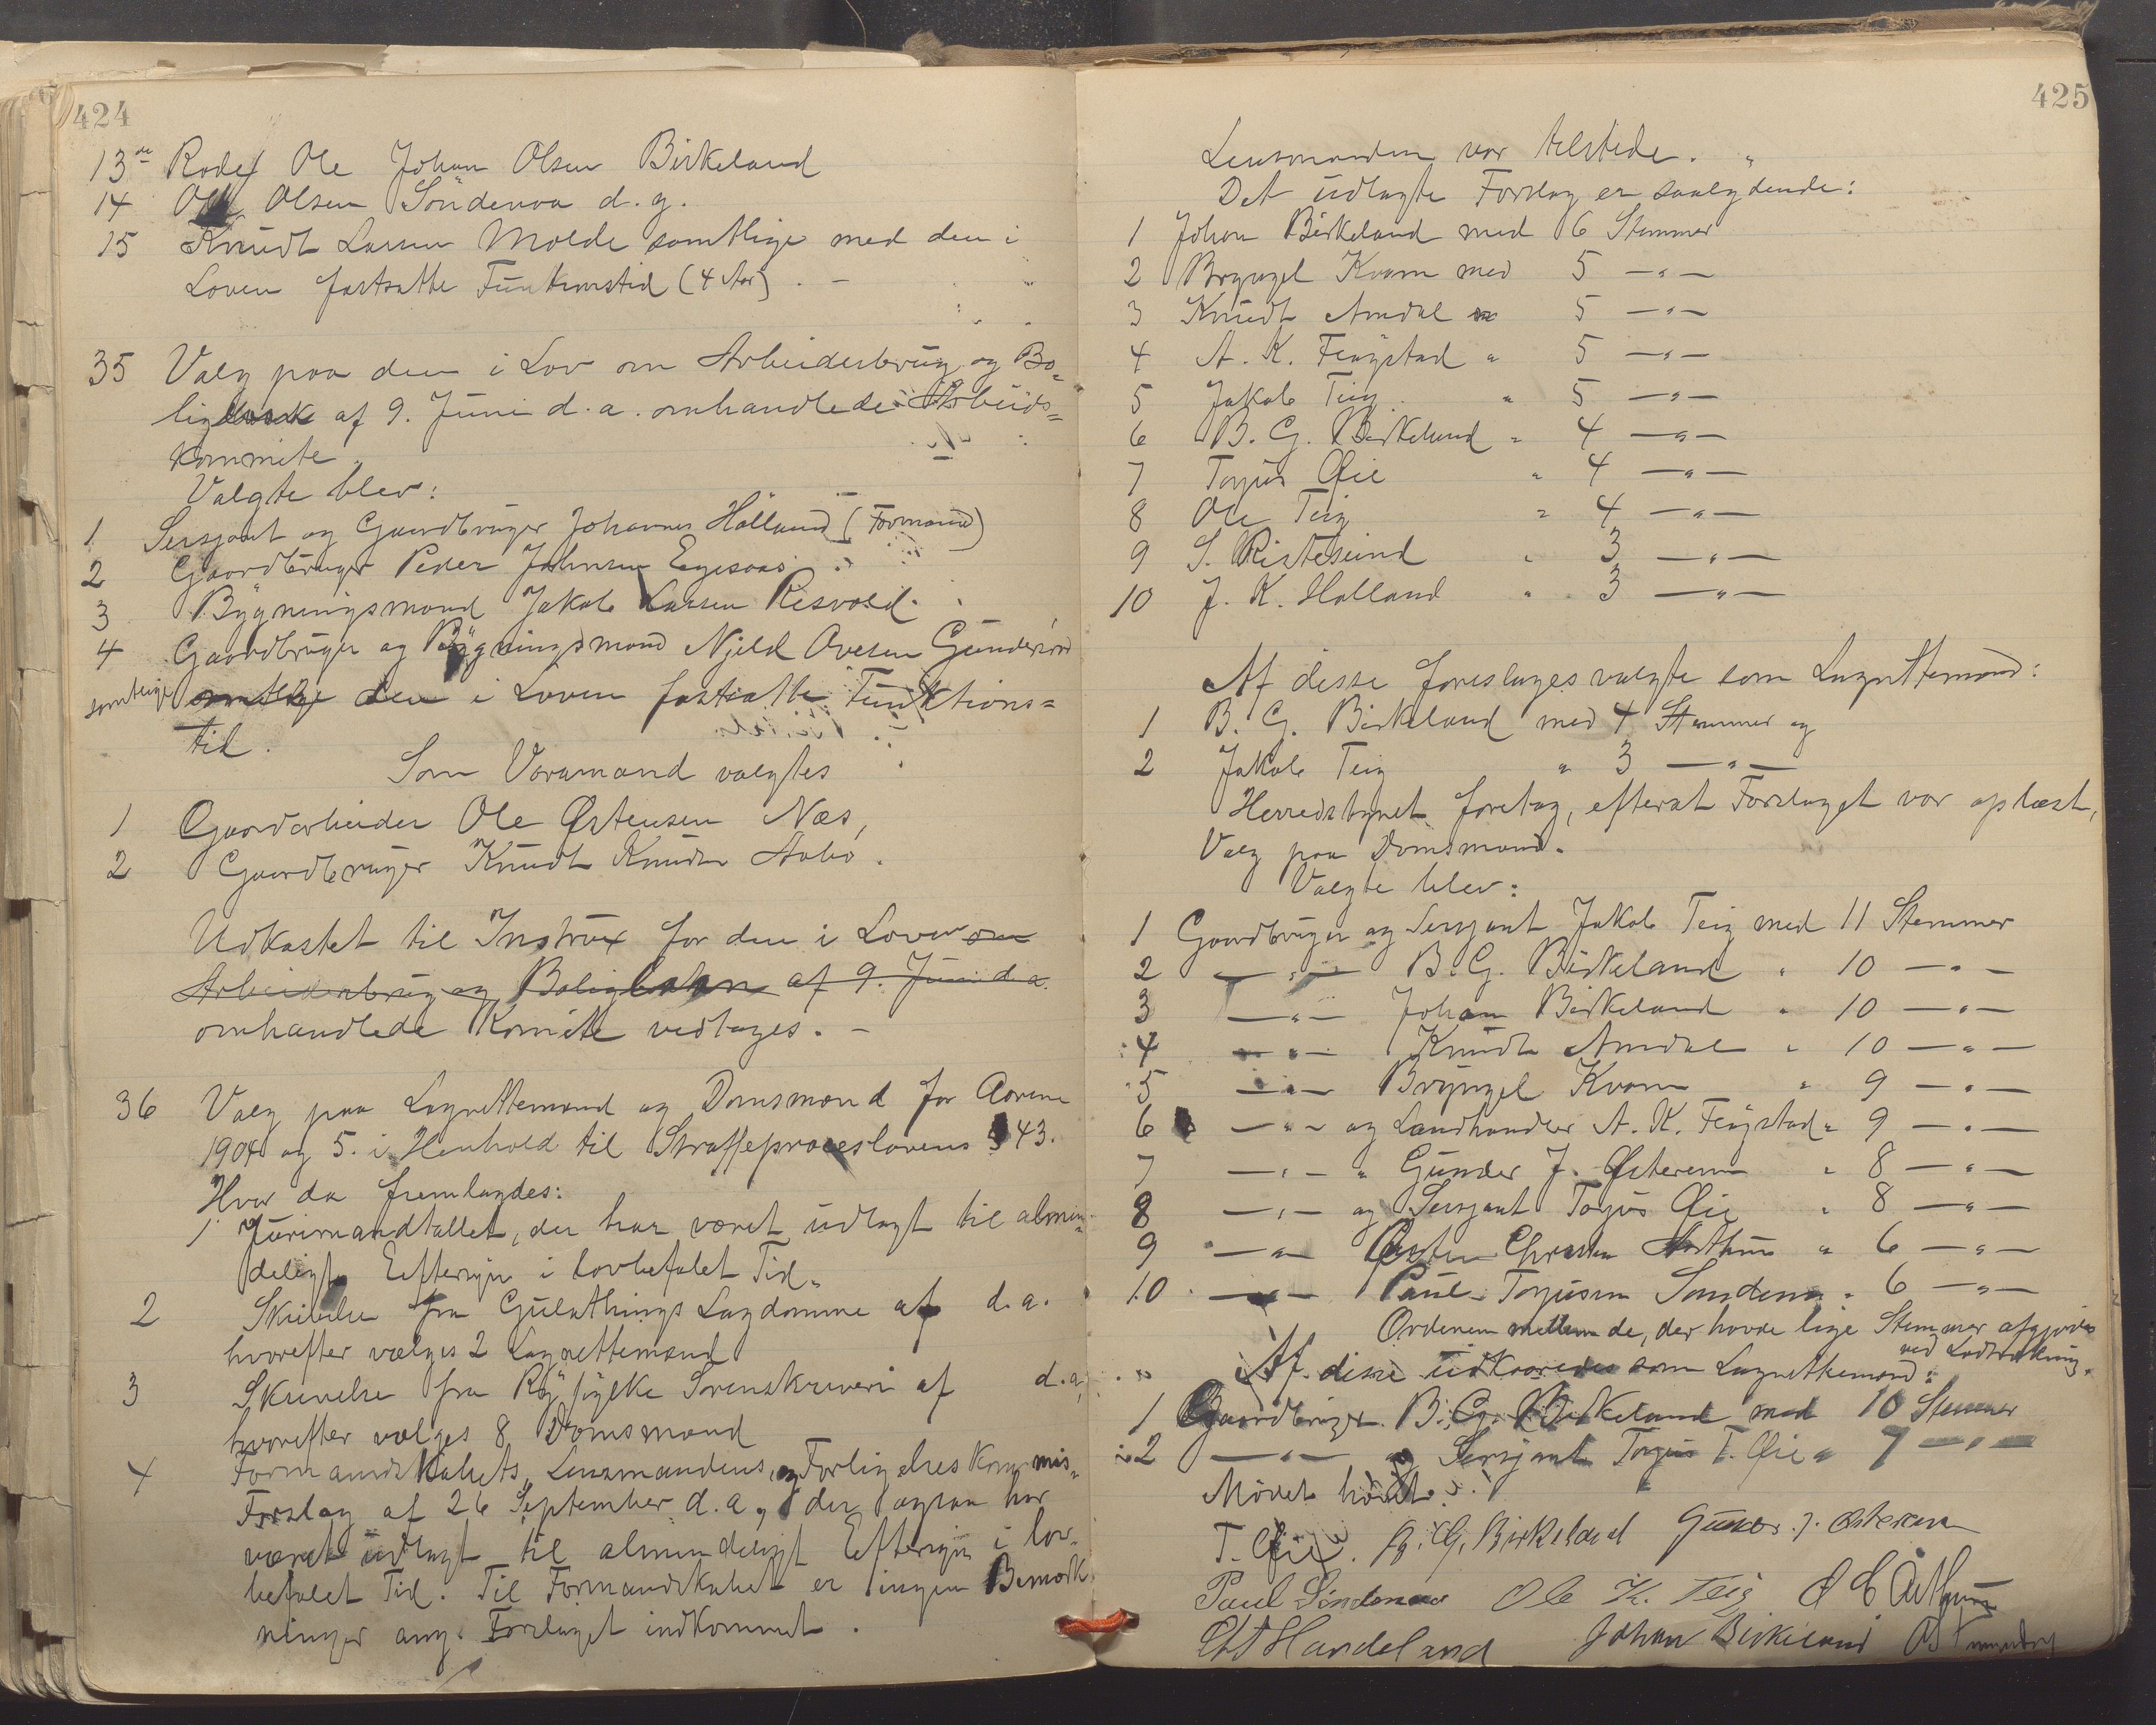 424
13de Rode Ole Johan Olsen Birkeland
14 Ole Olsen Söndenaa d. g.
15 Knudt Larsen Molde samtlige med den i
Loven fastsatte Funktionstid (4 Aar). -
35 Valg paa den i Lov om Arbeiderbrug og Bo-
liglaan af 9. Juni d. a. omhandlede Arbeids-
kommite.
Valgte blev:
1 Sersjant og Gaardbruger Johannes Hålland (Formand)
2 Gaardbruger Peder Johnsen Egesaas
3 Bygningsmand Jakob Larsen Risvold.
4 Gaardbruger og Bygningsmand Njeld Avesen
samtlige den i Loven fastsatte Funktions-
tid.
Som Varamænd valgtes
1 Gaardarbeider Ole Østensen Næs,
2 Gaardbruger Knudt Knudsen Aabø.
Udkastet til Instrux for den i Loven om
Arbeiderbrug og Boliglaan af 9. Juni d. a.
omhandlede Komite vedtages. -
36 Valg paa Lagrettemænd og Domsmænd for Aarene
1904 og 5. i Henhold til Straffeproceslovens § 43.
Hvor da fremlagdes:
1 Jurimandtallet, der har været udlagt til almin-
deligt Eftersyn i lovbefalet Tid.
2 Skrivelse fra Gulathings Lagdømme af d. a.
hvorefter vælges 2 Lagrettemænd
3 Skrivelse fra Ryfylke Sorenskriveri af d. a,
hvorefter vælges 8 Domsmænd
4 Formandskabets, Lensmandens, og Forligelseskommis-
Forslag af 26 September d. a., der ogsaa har
været udlagt til almindeligt Eftersyn i lov-
befalet Tid. Til Formandskabet er ingen Bemærk-
ninger ang. Forslaget indkommet.
425
Lensmanden var tilstede.
Det udlagte Forslag er saalydende:
1 Johan Birkeland med 6 Stemmer
2 Bryngel Kvam med 5 —"—
3 Knudt Amdal " 5 —"—
4 A. K. Fløgstad " 5 —"—
5 Jakob Teig " 5 —"—
6 B. G. Birkeland " 4 —"—
7 Torjus Øie " 4 —"—
8 Ole Teig " 4 —"—
9 S. Ristesund " 3 —"—
10 J. K. Halland " 3 —"—
Af disse foreslages valgte som Lagrettemænd:
1 B. G. Birkeland med 4 Stemmer og
2 Jakob Teig " 3 —"—
Herredstyret foretog, efterat Forslaget var oplæst,
Valg paa Domsmænd.
Valgte blev:
1 Gaardbruger og Sersjant Jakob Teig med 11 Stemmer
2 —"— B. G. Birkeland " 10 —"—
3 —"— Johan Birkeland " 10 —"—
4 —"— Knudt Amdal " 10 —"—
5 —"— Bryngel Kvam " 9 —"—
6 —"— og Landhandler A. K. Fløgstad " 9 —"—
7 —"— " Gunder J. Østerem " 8 —"—
8 —"— og Sersjant Torjus Øie " 8 —"—
9 —"— Østen Christen Aarthun " 6 —"—
10 —"— Paul Torjusen Søndenaa " 6 —"—
Ordenen mellem de, der havde lige Stemmer afgjordes
ved Lodtrækning.
Af disse udkaaredes som Lagrettemænd:
1 Gaardbruger B. G. Birkeland med 10 Stemmer
2 —"— og Sersjant Torjus T. Øie " 7 —"—
Mødet hævet.
T. Øie. B. G. Birkeland Gunder J. Østerem
Paul Söndenaa Ole K. Teig Ø C Arthun
Handeland Johan Birkeland